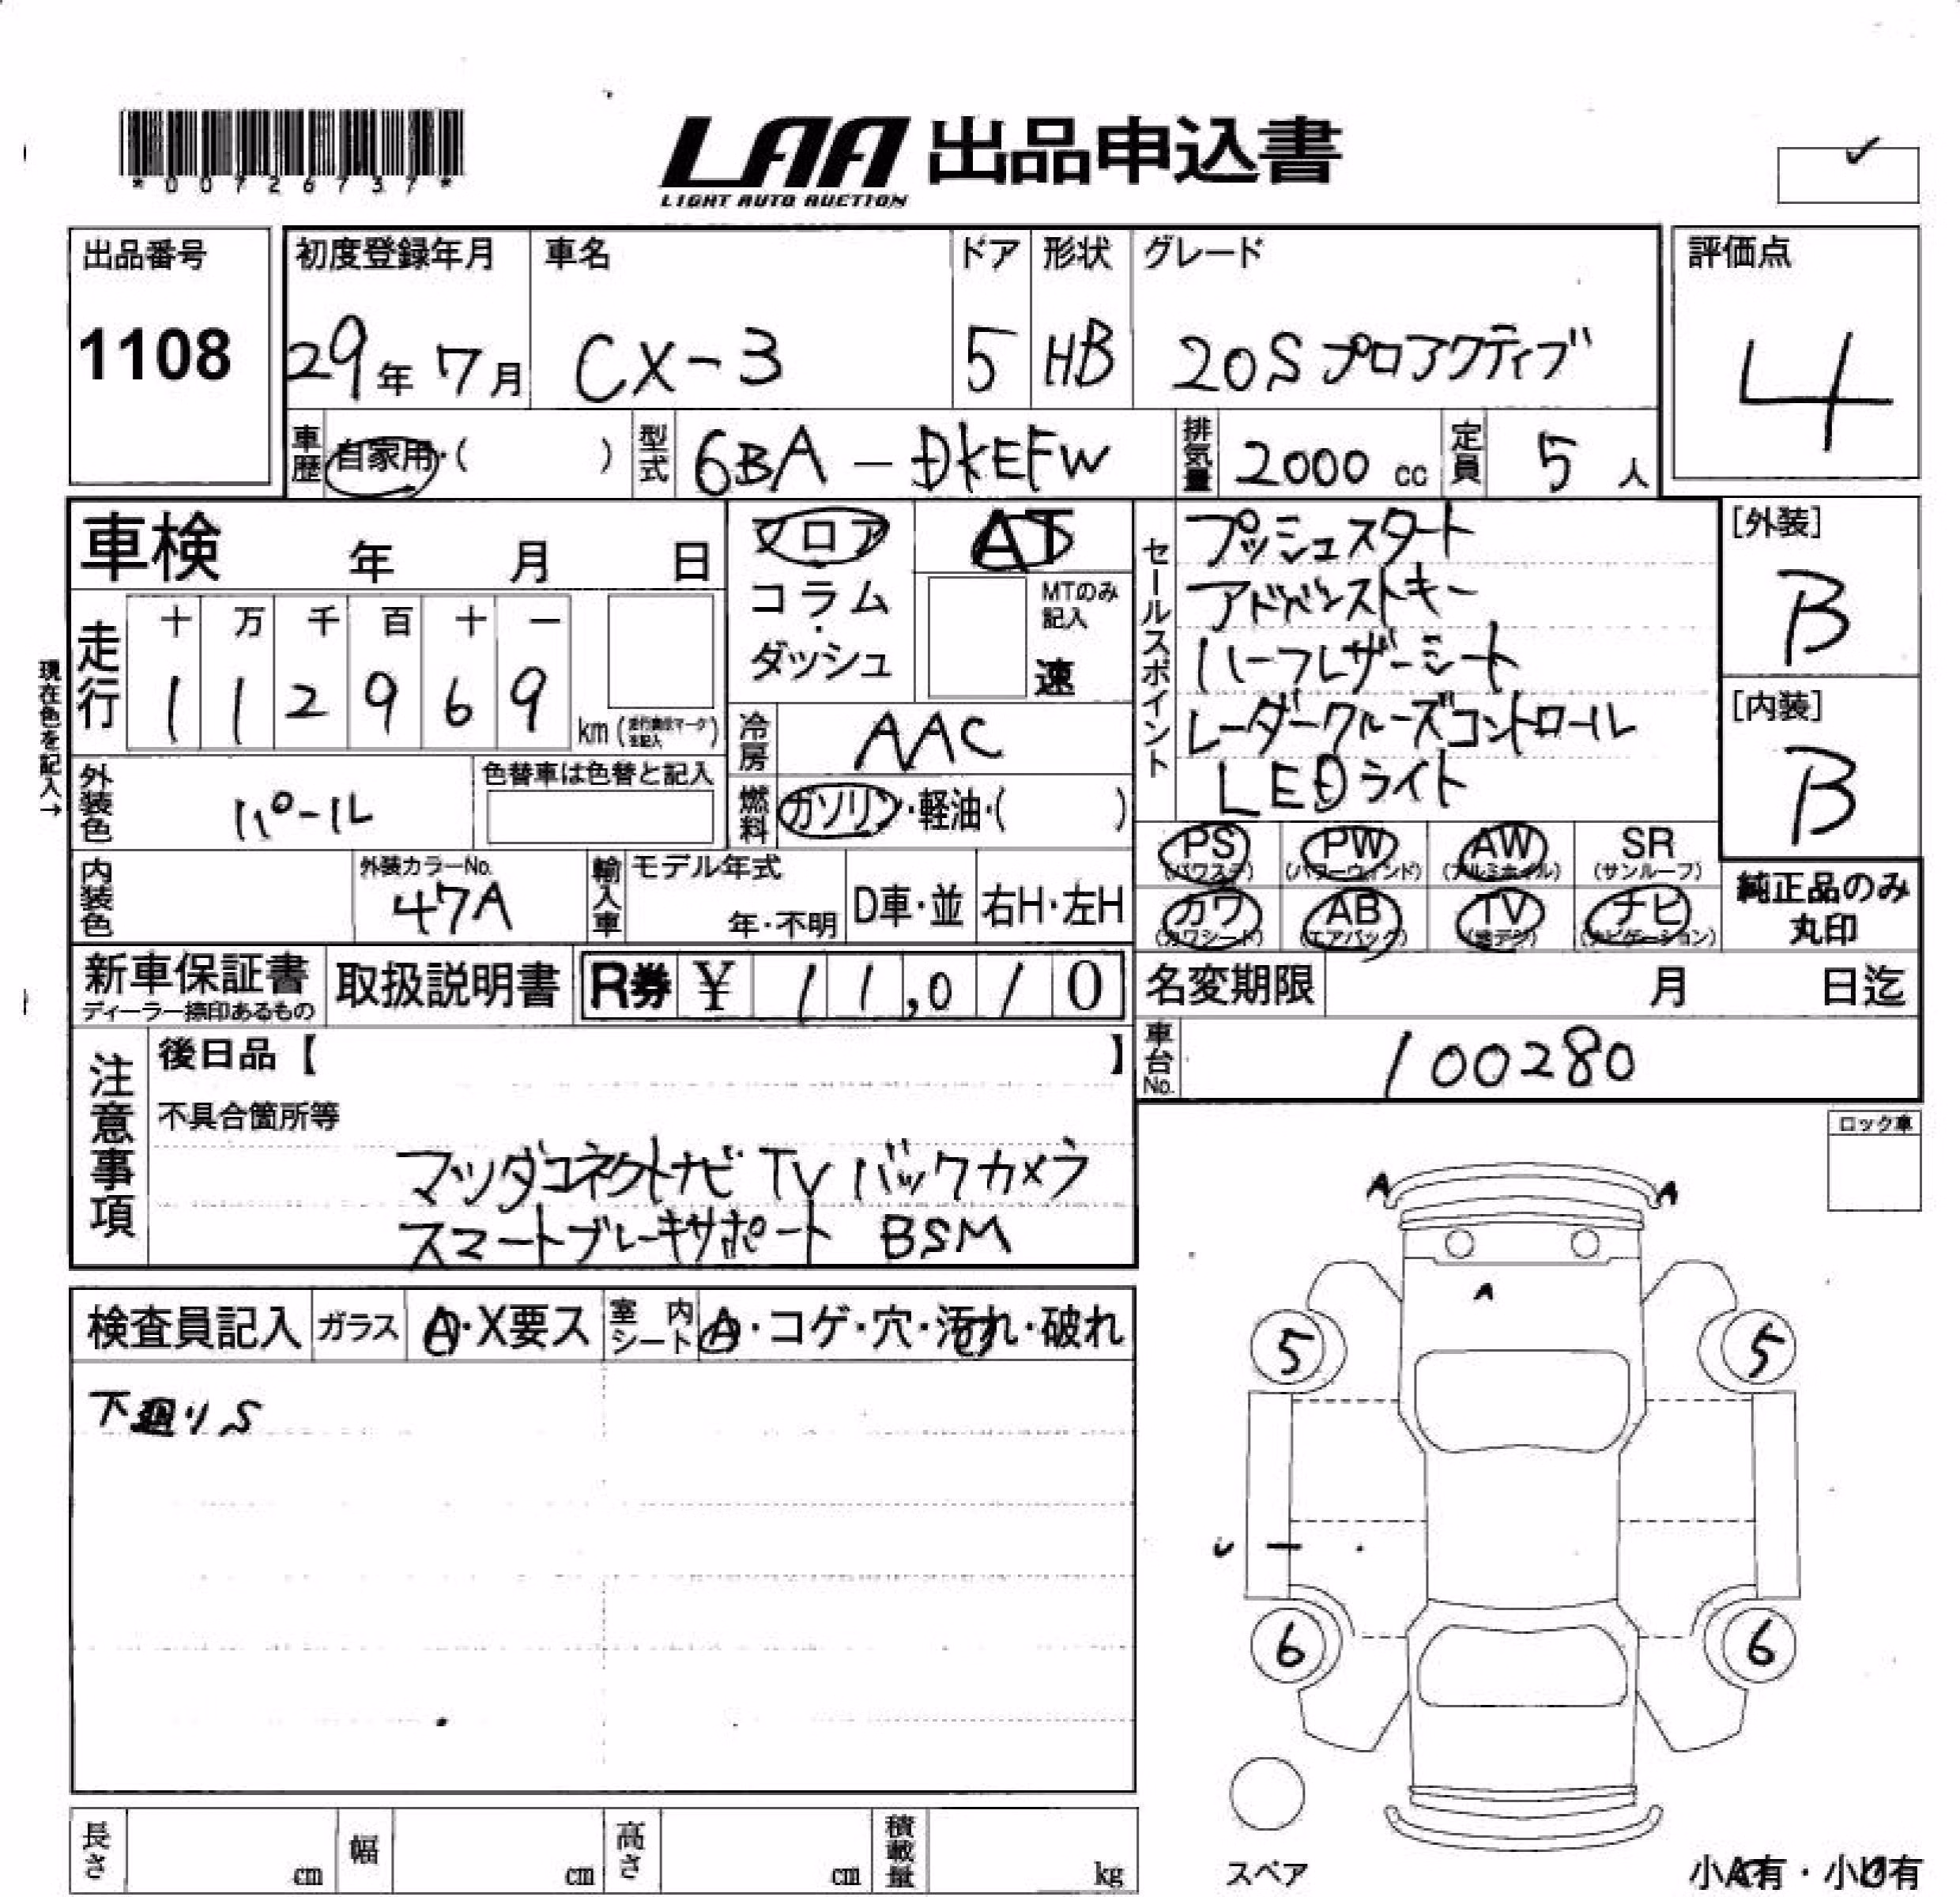 *00726737*
LAA 出品申込書
LIGHT AUTO AUCTION
出品番号
1108
初度登録年月
29年 7月
車名
CX-3
ドア
5
形状
HB
グレード
20S プロアクティブ
評価点
4
車歴 自家用・( )
型式 6BA - DKEFW
排気量 2000 cc
定員 5 人
車検 年 月 日
現在色を記入→
走行
十 万 千 百 十 一
1 1 2 9 6 9
km
フロア
コラム・
ダッシュ
AT
MTのみ
記入
速
冷房 AAC
燃料 ガソリン・軽油・( )
外装色 パール
色替車は色替と記入
内装色
外装カラーNo.
47A
輸入車
モデル年式
年・不明
D車・並
右H・左H
セールスポイント
プッシュスタート
アドバンストキー
ハーフレザーシート
レーダークルーズコントロール
LEDライト
[外装]
B
[内装]
B
PS
(パワステ)
PW
(パワーウィンド)
AW
(アルミホイル)
SR
(サンルーフ)
カワ
(カワシート)
AB
(エアバック)
TV
(地デジ)
ナビ
(ナビゲーション)
純正品のみ
丸印
新車保証書
ディーラー捺印あるもの
取扱説明書
R券 ¥ 11,010
名変期限 月 日迄
車台No. 100280
注意事項
後日品【 】
不具合箇所等
マツダコネクトナビ TV バックカメラ
スマートブレーキサポート BSM
ロック車
検査員記入
ガラス A・X要ス
室内シート A・コゲ・穴・汚れ・破れ
下廻りS
A A
A
5 5
6 6
スペア
長さ cm
幅 cm
高さ cm
積載量 kg
小A有・小U有